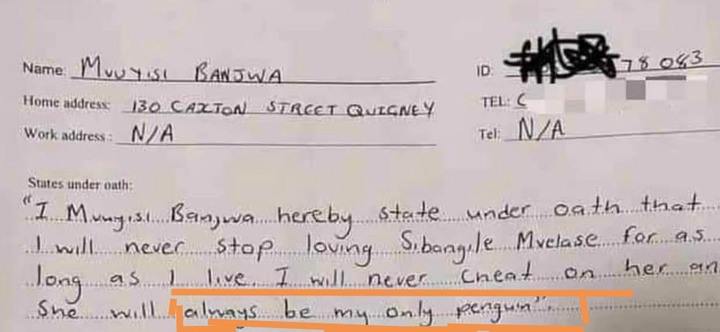 Name: Mvuyisi BANJWA
ID: 78 083
Home address: 130 CAXTON STREET QUIGNEY
TEL: C
Work address: N/A
Tel: N/A
States under oath:
"I Mvuyisi Banjwa hereby state under oath that
I will never stop loving Sibongile Mvelase for as
long as I live. I will never cheat on her an
She will always be my only penguin".